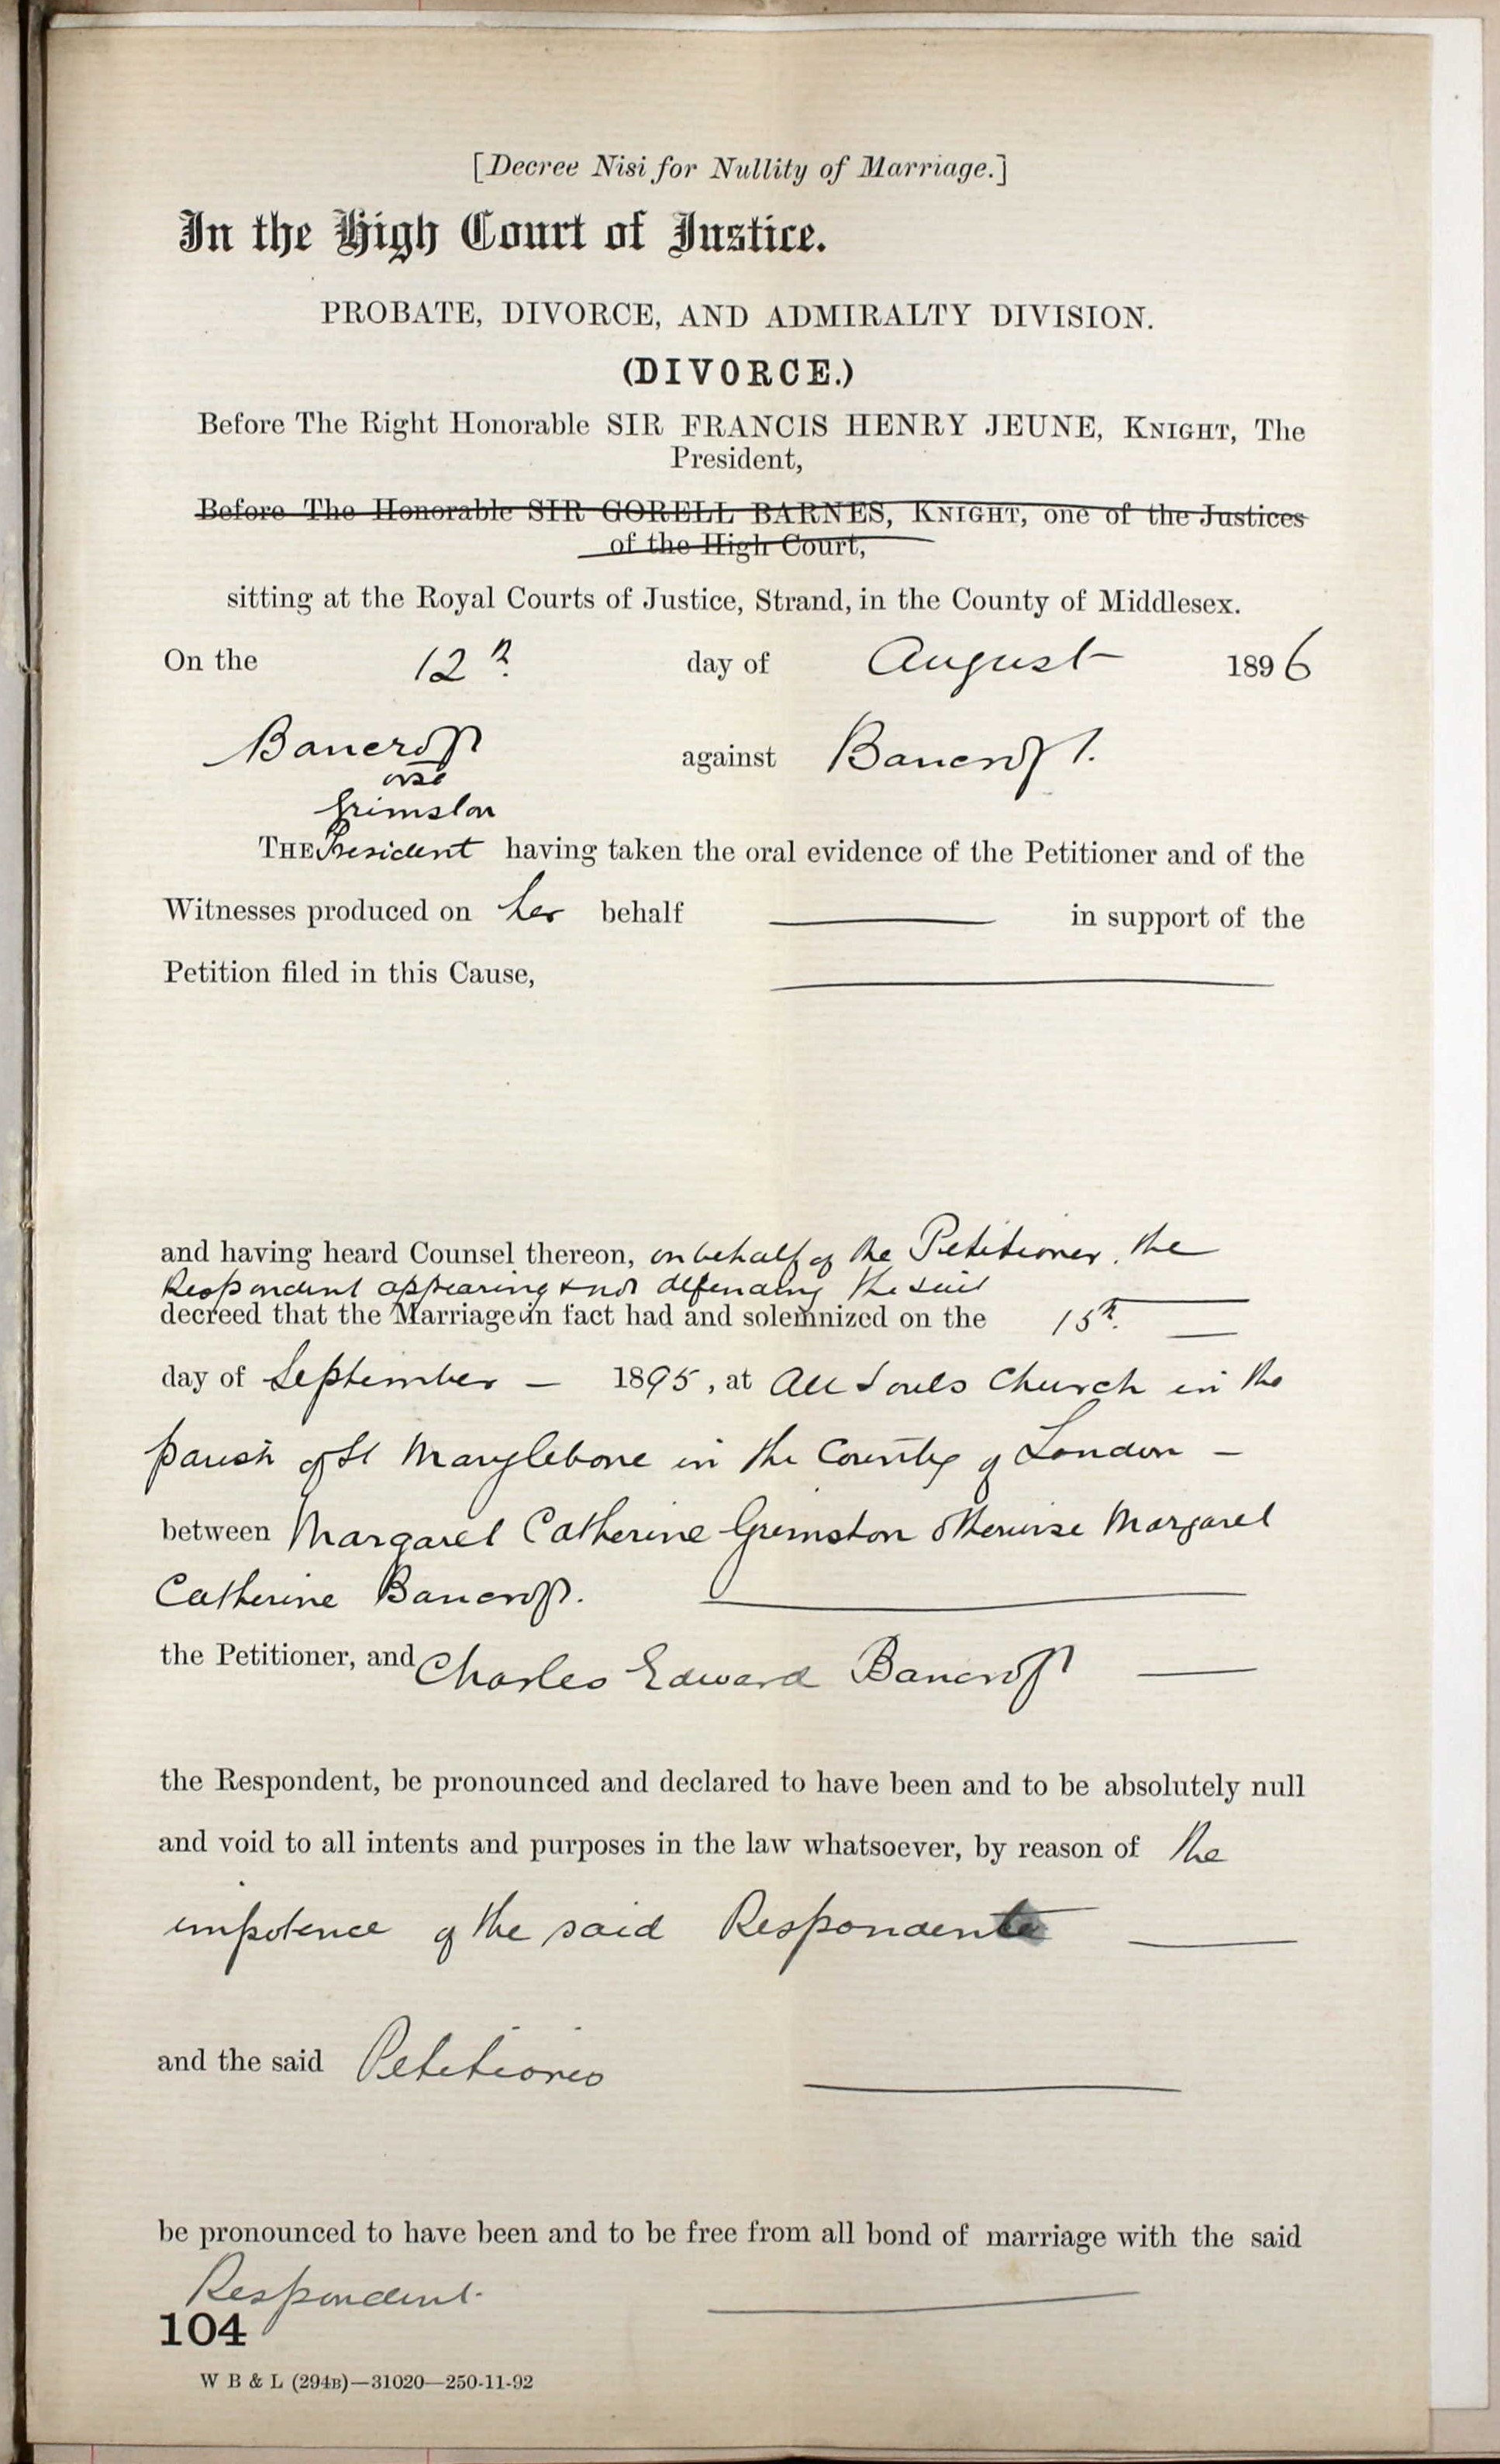 [Decree Nisi for Nullity of Marriage.]
In the High Court of Justice.
PROBATE, DIVORCE, AND ADMIRALTY DIVISION.
(DIVORCE.)
Before The Right Honorable SIR FRANCIS HENRY JEUNE, KNIGHT, The
President,
Before The Honorable SIR GORELL BARNES, KNIGHT, one of the Justices
of the High Court,
sitting at the Royal Courts of Justice, Strand, in the County of Middlesex.
On the 12th day of August 1896
Bancroft against Bancroft.
orse
Grimston
THE President having taken the oral evidence of the Petitioner and of the
Witnesses produced on her behalf in support of the
Petition filed in this Cause,
and having heard Counsel thereon, on behalf of the Petitioner, the
Respondent appearing & not defending the suit
decreed that the Marriage in fact had and solemnized on the 15th.
day of September – 1895, at All Souls Church in the
parish of St Marylebone in the County of London –
between Margaret Catherine Grimston otherwise Margaret
Catherine Bancroft.
the Petitioner, and Charles Edward Bancroft
the Respondent, be pronounced and declared to have been and to be absolutely null
and void to all intents and purposes in the law whatsoever, by reason of the
impotence of the said Respondent
and the said Petitioner
be pronounced to have been and to be free from all bond of marriage with the said
Respondent.
104
W B & L (294B)—31020—250-11-92